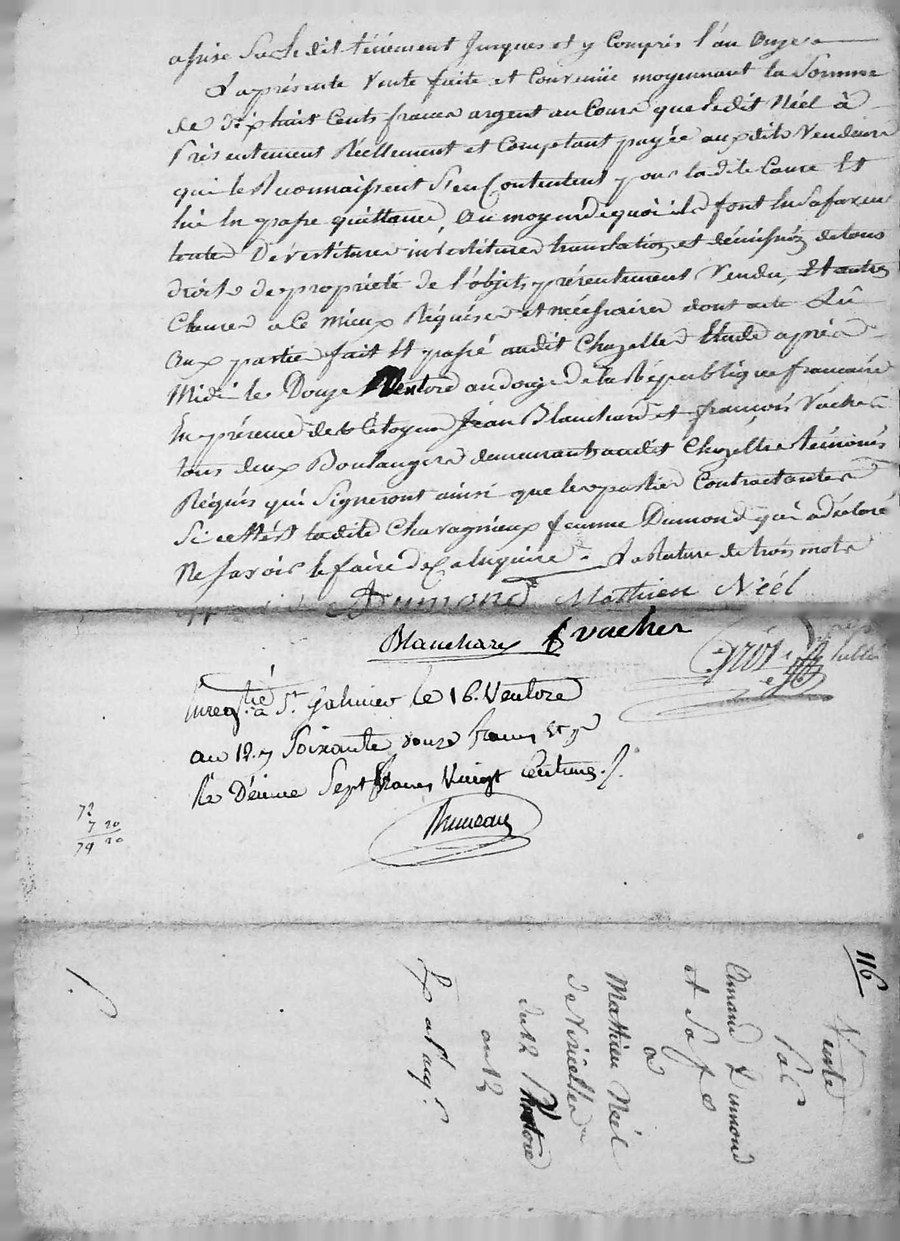 assise sur le dit tènement jusques et y compris l'an onze
La présente vente faite et convenüe moyennant la somme
de dix huit cents francs argent au cours que le dit Néel à
présentement réellement et comptant payée aux dits vendeurs
qui le reconnaissent s'en contentent pour la dite cause et
lui en passe quittance, au moyen de quoi ils font en sa faveur
toutes dévestitures investitures translation et démission de tous
droits de propriété de l'objet présentement vendu, et autres
clauses a ce mieux réquises et nécessaires dont acte Lû
aux parties fait et passé audit Chazelles étude après
midi le douze Ventose an douze de la République française
en présence des Citoyens Jean Blanchard et françois Vacher
tous deux Boulangers demeurants audit Chazelles témoins
réquis qui signeront ainsi que les parties contractantes
si ce n'est ladite Chavagnieux femme Dumond qui a déclaré
ne savoir le faire de ce enquise. La rature de trois mots
Dumond Mathieu Néel
Blanchard f vacher
Gros
Enregtré à St. Galmier le 16. Ventose
an 12. Soixante douze francs
Le Décime Sept francs Vingt Centimes.
Bruneau
72
7 20
79 20
116
Vente
Par
Amand Dumond
et Sa fe
a
Mathieu Néel
de Viricelles
du 12 Ventose
an 12